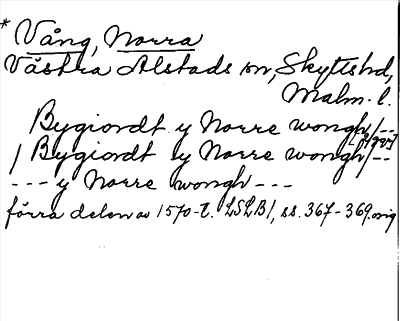 * Vång, Norra
Västra Alstads sn, Skytts hd,
Malm. l.
Bygiordt y Norre wongh/---
/ Bygiordt y Norre wongh/---
--- y Norre wongh ---
förra delen av 1570-t. LSLB1, ss. 367-369. orig